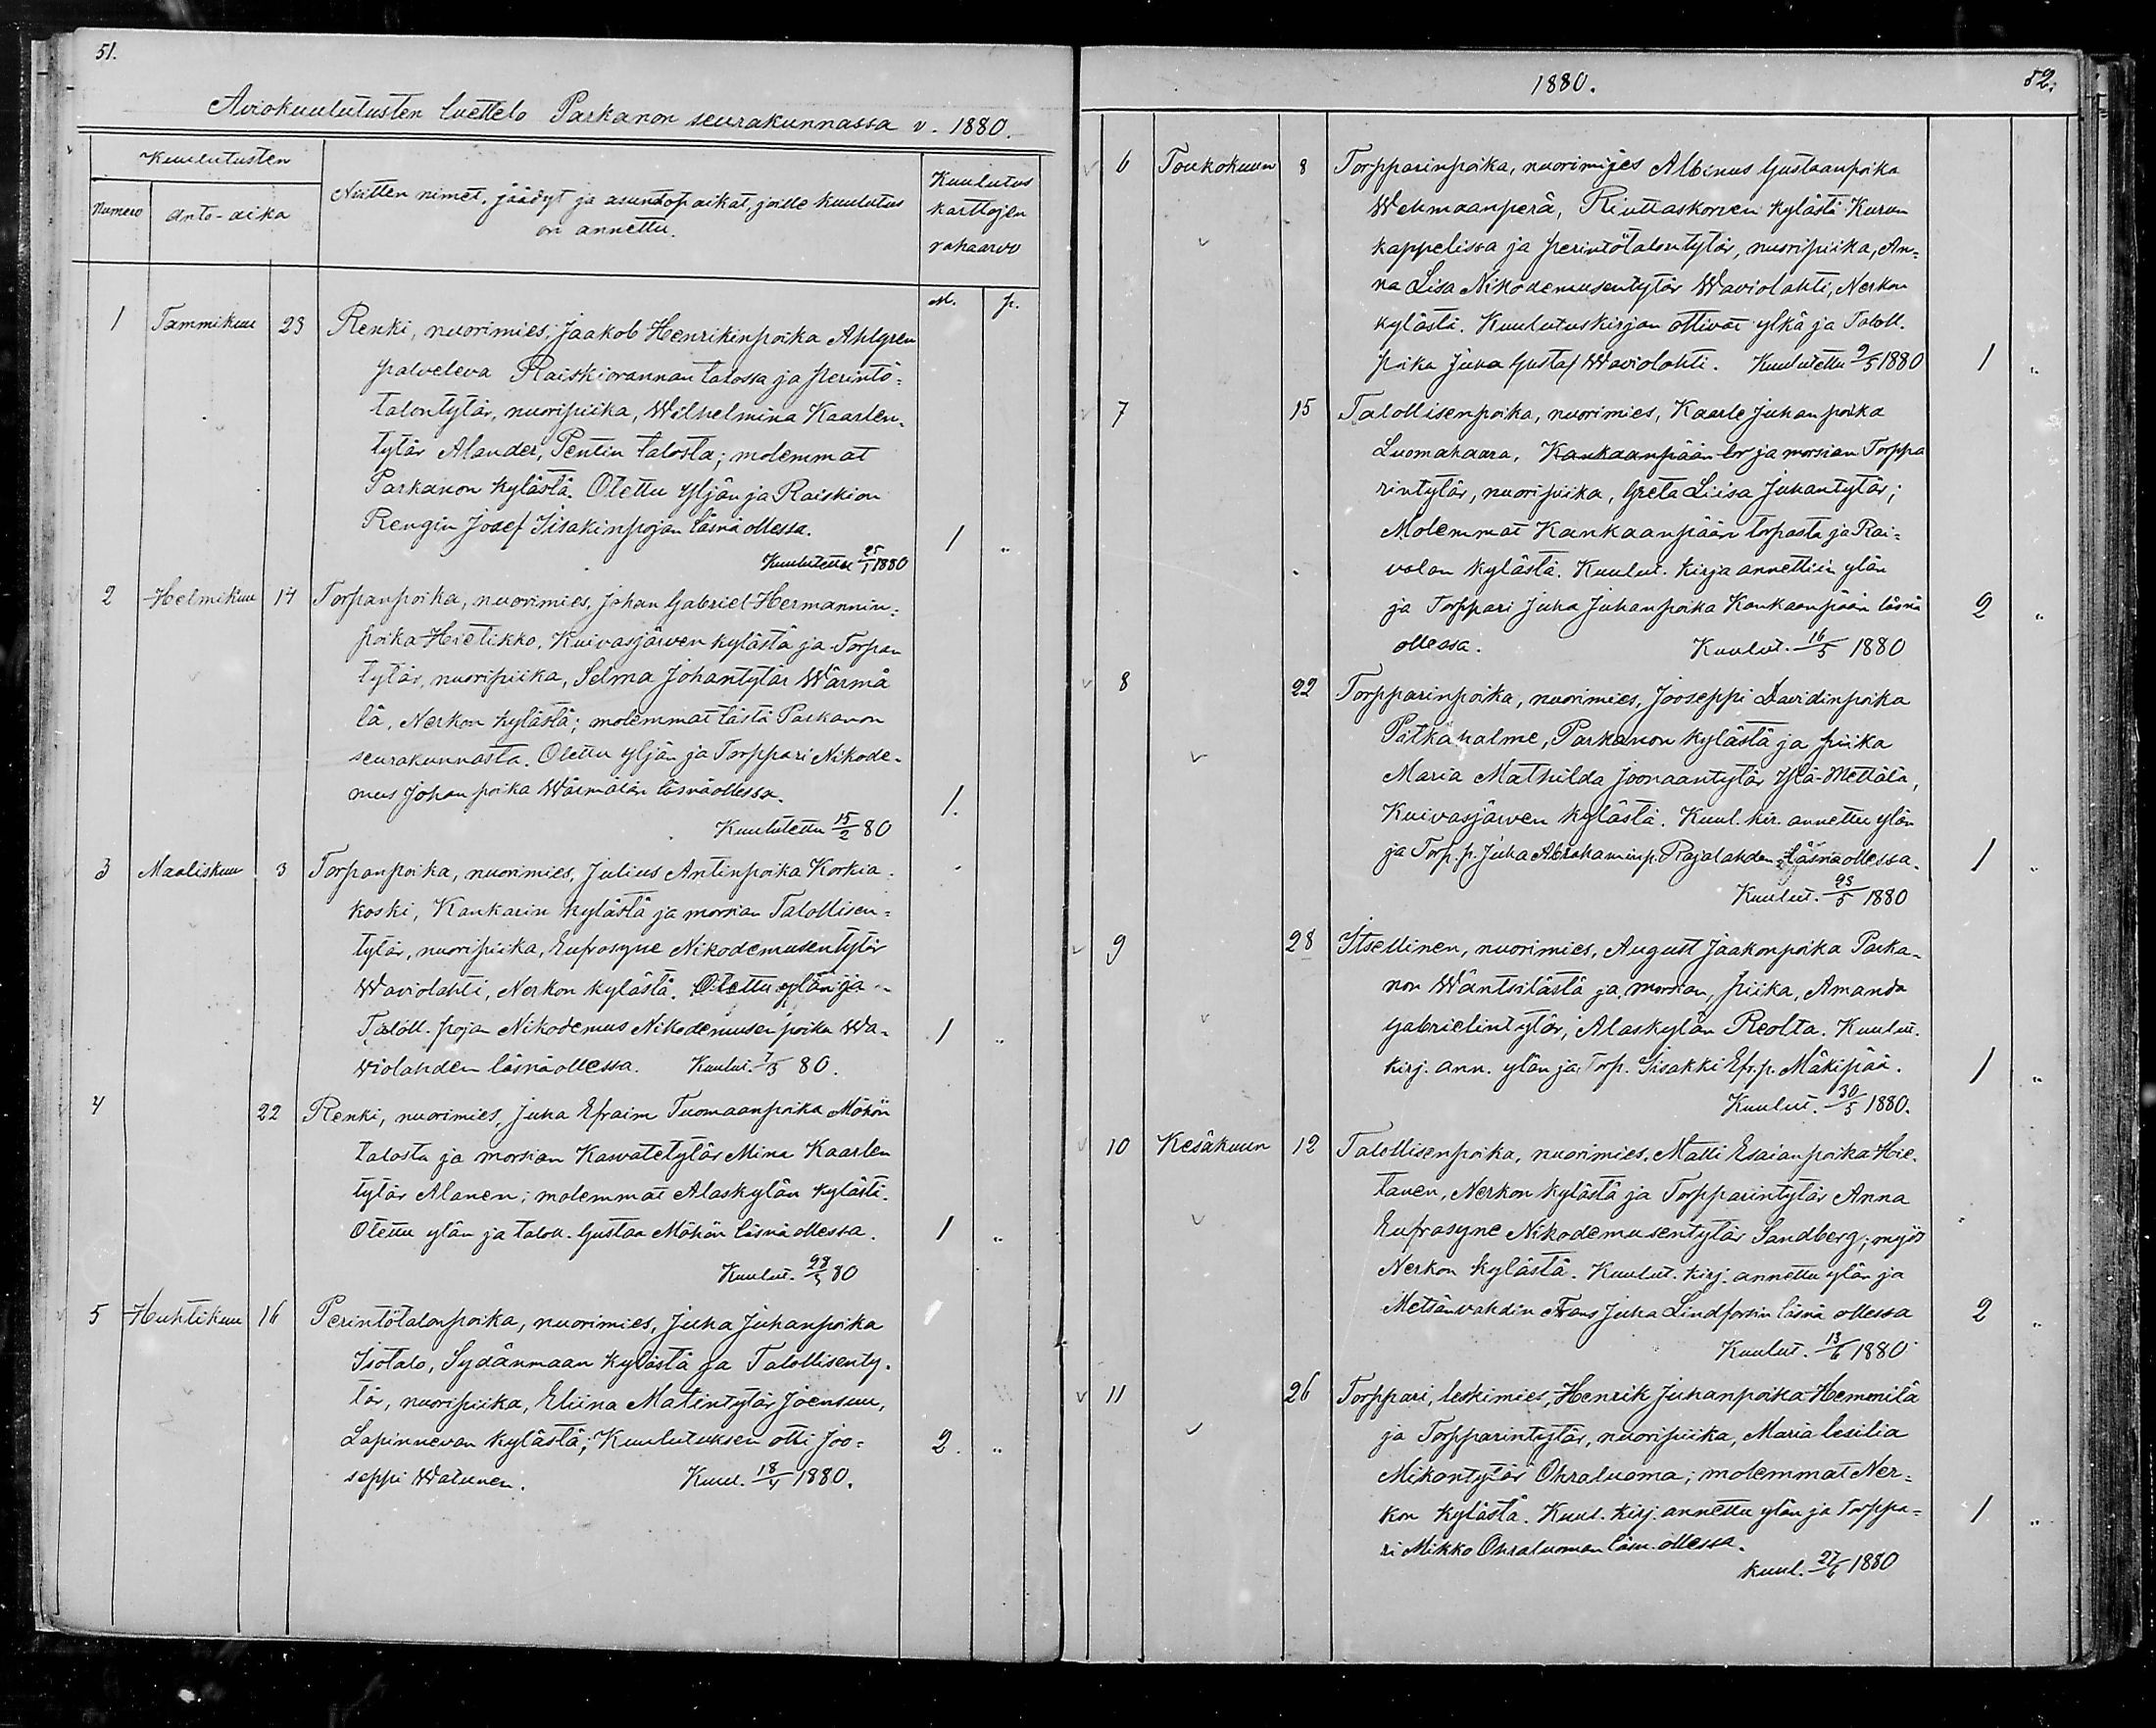 51.
Aviokuulutusten luettelo Parkanon seurakunnassa v. 1880.
Kuulutusten
Numero
Anto-aika
Niitten nimet, säädyt ja asuntopaikat, joille kuulutus
on annettu.
Kuulutus
karttojen
rahaarvo
M. p.
1 Tammikuu 23 Renki, nuorimies, Jaakob Henrikinpoika Ahlgren
palveleva Raiskiorannan talossa ja perintö-
talontytär, nuoripiika, Wilhelmina Kaarlen-
tytär Alander, Pentin talosta; molemmat
Parkanon kylästä. Otettu yljän ja Raiskion
Rengin Josef Iisakinpojan läsnä ollessa. 1 "
Kuulutettu 25/1 1880
2 Helmikuu 14 Torpanpoika, nuorimies, Johan Gabriel Hermannin-
poika Hietikko, Kuivasjärwen kylästä ja Torpan
tytär, nuoripiika, Selma Johantytär Wärmä
lä, Nerkon kylästä; molemmat tästä Parkanon
seurakunnasta. Otettu yljän ja Torppari Nikode-
mus Johanpoika Wärmälän läsnäollessa. 1.
Kuulutettu 15/2 80
3 Maaliskuu 3 Torpanpoika, nuorimies, Julius Antinpoika Korkia-
koski, Kankarin kylästä ja morsian Talollisen-
tytär, nuoripiika, Eufrosyne Nikodemusentytär
Waviolahti, Nerkon kylästä. Otettu ylän ja
Taloll. pojan Nikodemus Nikodemusen poika Wa-
violahden läsnäollessa. Kuulut. 7/3 80. 1 "
4 22 Renki, nuorimies, Juha Efraim Tuomaanpoika Möhön
talosta ja morsian Kasvatetytär Mina Kaarlen
tytär Alanen; molemmat Alaskylän kylästä.
Otettu ylän ja taloll. Gustaa Möhön läsnä ollessa. 1 "
Kuulut. 28/3 80
5 Huhtikuu 16 Perintötalonpoika, nuorimies, Juha Juhanpoika
Isotalo, Sydänmaan kylästä ja Talollisenty-
tär, nuoripiika, Eliina Matintytär Joensuu,
Lapinnevan kylästä; Kuulutuksen otti Joo-
seppi Watunen. Kuul. 18/4 1880. 2. "
1880.
52.
6 Toukokuun 8 Torpparinpoika, nuorimies Albinus Gustaanpoika
Wehmaanperä, Riuttaskorven kylästä Kurun
kappelissa ja perintötalontytär, nuoripiika, An-
na Lisa Nikodemusentytär Waviolahti, Nerkon
kylästä. Kuulutuskirjan ottivat ylkä ja Taloll.
poika Juha Gustaf Waviolahti. Kuulutettu 9/5 1880 1 "
7 15 Talollisenpoika, nuorimies, Kaarle Juhanpoika
Luomahaara, Kankaanpään tor ja morsian Torppa
rintytär, nuoripiika, Greta Liisa Juhantytär;
Molemmat Kankaanpään torpasta ja Rai-
valan kylästä. Kuulut. kirja annettiin ylän
ja Torppari Juha Juhanpoika Kankaanpään läsnä
ollessa. Kuulut. 16/5 1880 2 "
8 22 Torpparinpoika, nuorimies, Jooseppi Davidinpoika
Pitkähalme, Parkanon kylästä ja piika
Maria Mathilda Joonaantytär Ylä-Mettälä,
Kuivasjärwen kylästä. Kuul. kir. annettu ylän
ja Torp. p. Juha Abrahaminp. Rajalahden läsnäollessa. 1 "
Kuulut. 23/5 1880
9 28 Itsellinen, nuorimies, August Jaakonpoika Parka-
non Wäntsilästä ja morsian, piika, Amanda
Gabrielintytär, Alaskylän Reolta. Kuulut.
kirj. ann. ylän ja Torp. Iisakki Efr.p. Mäkipää. 1 "
Kuulut. 30/5 1880.
10 Kesäkuun 12 Talollisenpoika, nuorimies, Matti Esaianpoika Hie-
tanen, Nerkon kylästä ja Torpparintytär Anna
Eufrosyne Nikodemusentytär Sandberg; myös
Nerkon kylästä. Kuulut. kirj. annettu ylän ja
Metsänvahdin Frans Juha Lindforsin läsnä ollessa 2 "
Kuulut. 13/6 1880
11 26 Torppari, leskimies, Henrik Juhanpoika Hemmilä
ja Torpparintytär, nuoripiika, Maria Cesilia
Mikontytär Ohraluoma; molemmat Ner-
kon kylästä. Kuul. kirj. annettu ylän ja Torppa-
ri Mikko Ohraluoman läsn. ollessa. 1 "
Kuul. 27/6 1880